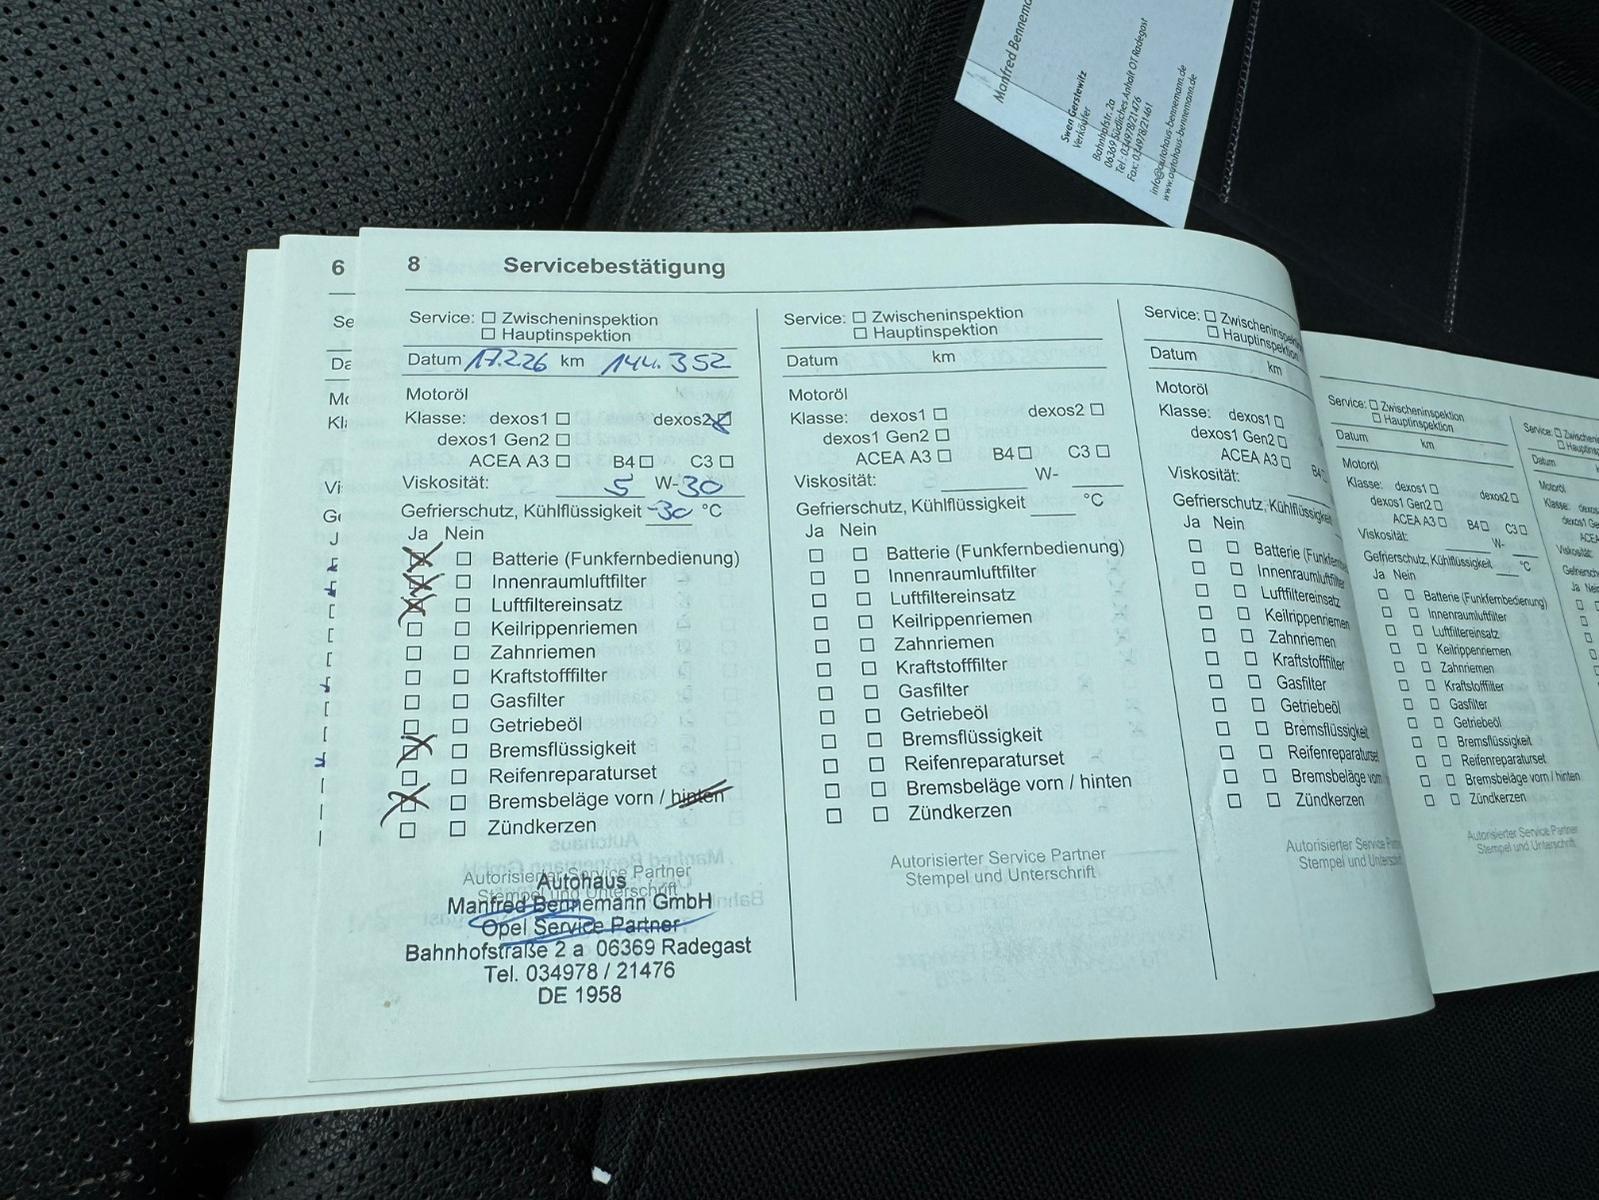 Manfred Bennem
Swen Gerstewitz
Verkäufer
Bahnhofstr. 2a
06369 Südliches Anhalt OT Radegast
Tel.: 034978/21476
Fax: 034978/21461
info@autohaus-bennemann.de
www.autohaus-bennemann.de
6
8 Servicebestätigung
Service: Zwischeninspektion
Hauptinspektion
Datum 17.2.26 km 144.352
Motoröl
Klasse: dexos1 dexos2
dexos1 Gen2
ACEA A3 B4 C3
Viskosität: 5 W-30
Gefrierschutz, Kühlflüssigkeit -30 °C
Ja Nein
Batterie (Funkfernbedienung)
Innenraumluftfilter
Luftfiltereinsatz
Keilrippenriemen
Zahnriemen
Kraftstofffilter
Gasfilter
Getriebeöl
Bremsflüssigkeit
Reifenreparaturset
Bremsbeläge vorn / hinten
Zündkerzen
Autorisierter Service Partner
Stempel und Unterschrift
Autohaus
Manfred Bennemann GmbH
Opel Service Partner
Bahnhofstraße 2 a 06369 Radegast
Tel. 034978 / 21476
DE 1958
Service: Zwischeninspektion
Hauptinspektion
Datum km
Motoröl
Klasse: dexos1 dexos2
dexos1 Gen2
ACEA A3 B4 C3
Viskosität: W-
Gefrierschutz, Kühlflüssigkeit °C
Ja Nein
Batterie (Funkfernbedienung)
Innenraumluftfilter
Luftfiltereinsatz
Keilrippenriemen
Zahnriemen
Kraftstofffilter
Gasfilter
Getriebeöl
Bremsflüssigkeit
Reifenreparaturset
Bremsbeläge vorn / hinten
Zündkerzen
Autorisierter Service Partner
Stempel und Unterschrift
Service: Zwischeninspektion
Hauptinspektion
Datum km
Motoröl
Klasse: dexos1
dexos1 Gen2
ACEA A3 B4
Viskosität:
Gefrierschutz, Kühlflüssigkeit
Ja Nein
Batterie (Funkfe
Innenraumluftfilter
Luftfiltereinsatz
Keilrippenriemen
Zahnriemen
Kraftstofffilter
Gasfilter
Getriebeöl
Bremsflüssigkeit
Reifenreparaturset
Bremsbeläge vorn
Zündkerzen
Autorisierter Service Par
Stempel und Unterschri
Service: Zwischeninspektion
Hauptinspektion
Datum km
Motoröl
Klasse: dexos1 dexos2
dexos1 Gen2
ACEA A3 B4 C3
Viskosität: W-
Gefrierschutz, Kühlflüssigkeit °C
Ja Nein
Batterie (Funkfernbedienung)
Innenraumluftfilter
Luftfiltereinsatz
Keilrippenriemen
Zahnriemen
Kraftstofffilter
Gasfilter
Getriebeöl
Bremsflüssigkeit
Reifenreparaturset
Bremsbeläge vorn / hinten
Zündkerzen
Autorisierter Service Partner
Stempel und Unterschrift
Service:
Datum
Motoröl
Klasse: